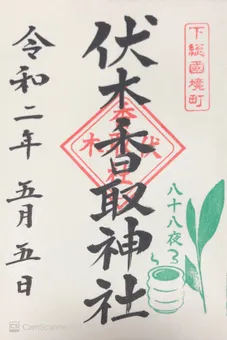 下総國境町
伏木香取神社
八十八夜
令和二年 五月五日
CamScanner